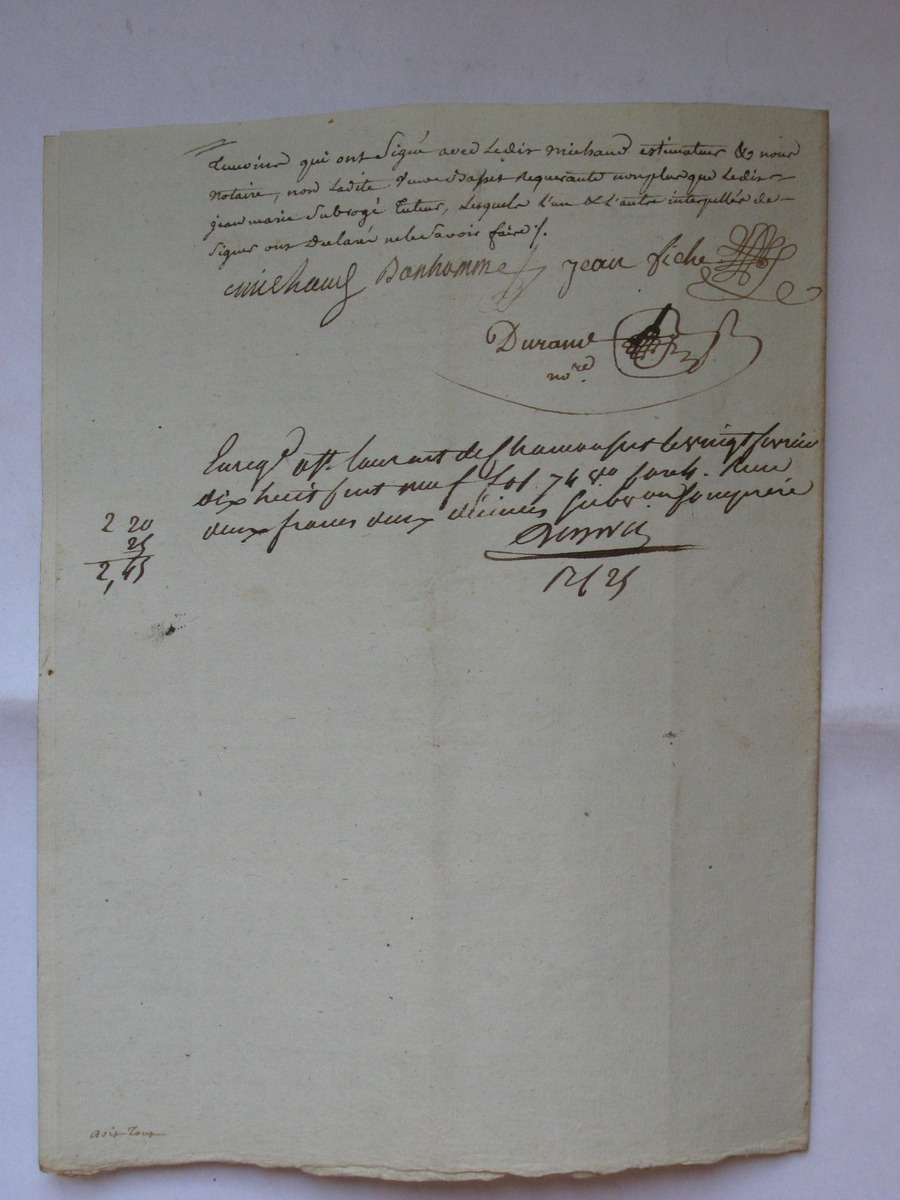 Temoins qui ont Signé avec Ledit Michaud estimateur & nous
Notaire, non Ladite Veuve Basset Requerante non plus que Ledit
jean marie Subrogé tuteur, Lesquels L'un & L'autre interpellés de
Signer ont Declaré ne le Savoir faire /.
Michaud Bonhomme jean fiche
Durand
no.re
Enreg.é à St. Laurent de Chamousset le vingt fevrier
dix huit cent neuf fol. 74 v.o Reçu
deux francs deux décimes Subv.on Comprise
2 20
25
2,45
12 f 25